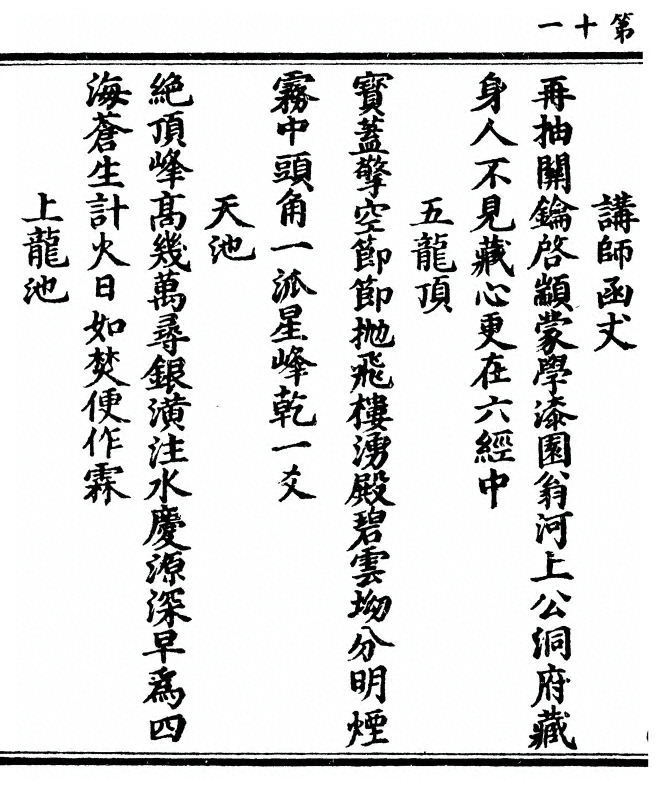 第十一
講師函丈
再抽關鑰啓顓蒙學漆園翁河上公洞府藏
身人不見藏心更在六經中
五龍頂
寳蓋擎空節節抛飛樓湧殿碧雲坳分明煙
霧中頭角一派星峰乾一爻
天池
絶頂峰髙幾萬尋銀潢注水慶源深早爲四
海蒼生計火日如焚便作霖
上龍池